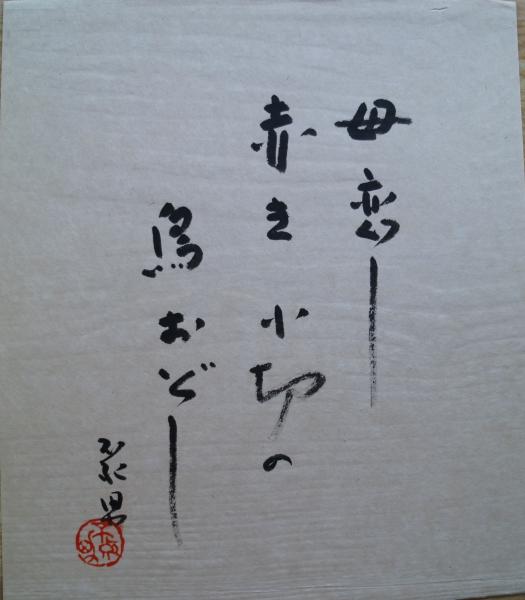 母恋し
赤き小切の
鳥おどし
不死男